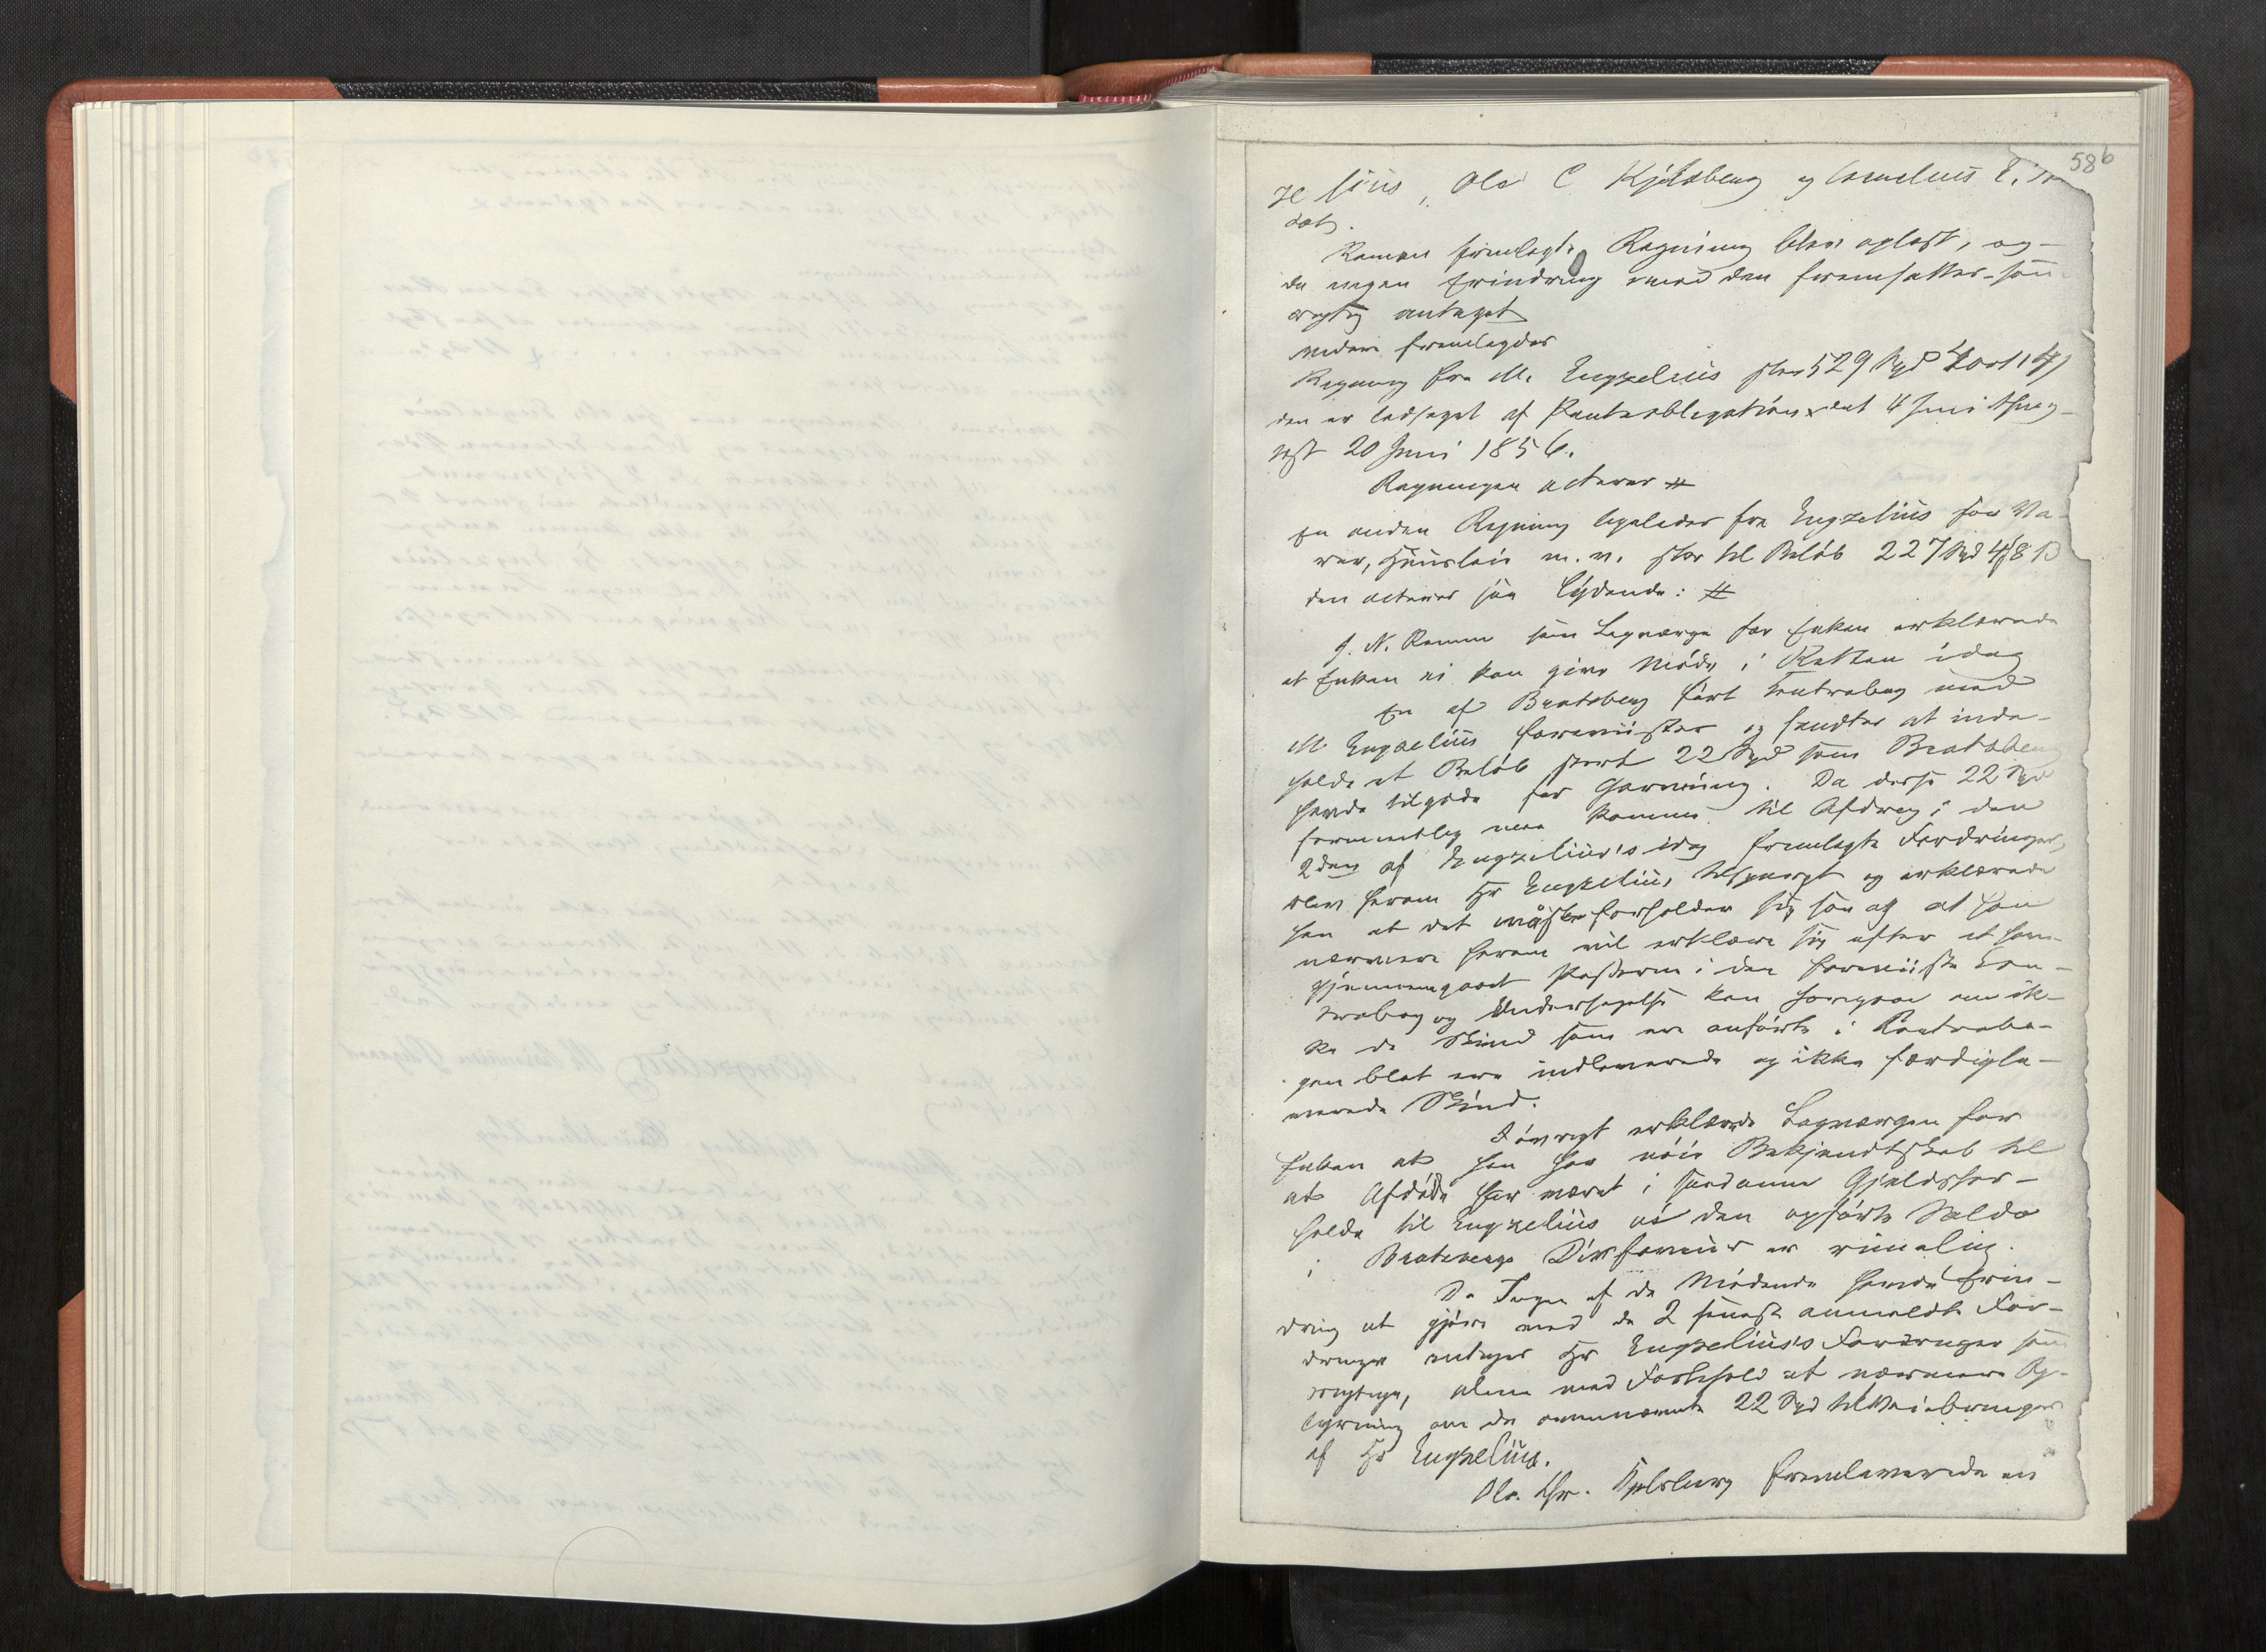 58b
zelius, Ole C Kjelsberg og Cornelius E.
dat.
Ramms fremlagte Regning blev oplæst, og
da ingen Erindring mod den fremsattes som
rigtig antaget
videre fremlagdes
Regning fra M. Engzelius stor 529 Spd 4 ort 14
den er ledsaget af Panteobligation dat 4 Juni thing-
læst 20 Juni 1856.
Regningen acteres #
En anden Regning ligeledes fra Engzelius for Va-
rer, Huusleie m.v. stor til Beløb 227 Spd 4 8 β
den acteres saa lydende: #
J. N. Ramm som Laugværge for Enken erklærede
at Enken ei kan give Møde i Retten idag
En af Bratsberg ført Contrabog med
M Engzelius forevistes og fandtes at inde-
holde et Beløb stort 22 Spd som Bratsberg
havde tilgode for Garvning. Da disse 22 Spd
formentlig maa komme til Afdrag i den
2den af Engzelius's idag fremlagte Fordringer,
blev herom Hr Engzelius tilspurgt og erklærede
han at det måske forholder sig saa og at han
nærmere herom vil erklære sig efter at have
gjennemgaaet Posterne i den foreviiste Con-
trabog og Undersøgelse kan foregaae om ik-
ke de Skind som ere anførte i Contrabo-
gen blot ere indleverede og ikke færdigle-
verede Skind.
Iøvrigt erklærede Laugværgen for
Enken at han har nøie Bekjendtskab til
at Afdøde har været i saadanne Gjeldsfor-
holde til Engzelius at den opførte Saldo
i Bratsbergs Disfaveur er rimelig.
Da Ingen af de Mødende havde Erin-
dring at gjøre mod de 2 senest anmeldte For-
dringer antages Hr Engzelius's Fordringer som
rigtige, alene med Forbehold at nærmere Op-
lysning om de omnævnte 22 Spd tilveiebringes
af Hr Engzelius.
Ole Chr. Kjelsberg fremleverede en